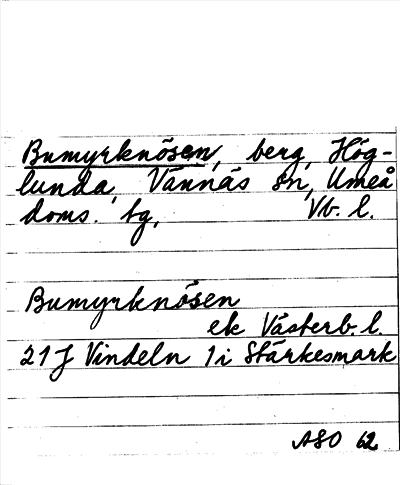 Bumyrknösen, berg, Hög-
lunda, Vännäs sn, Umeå
doms. tg, Vb. l.
Bumyrknösen
ek Västerb. l.
21 J Vindeln 1 i Stärkesmark
ASO 62